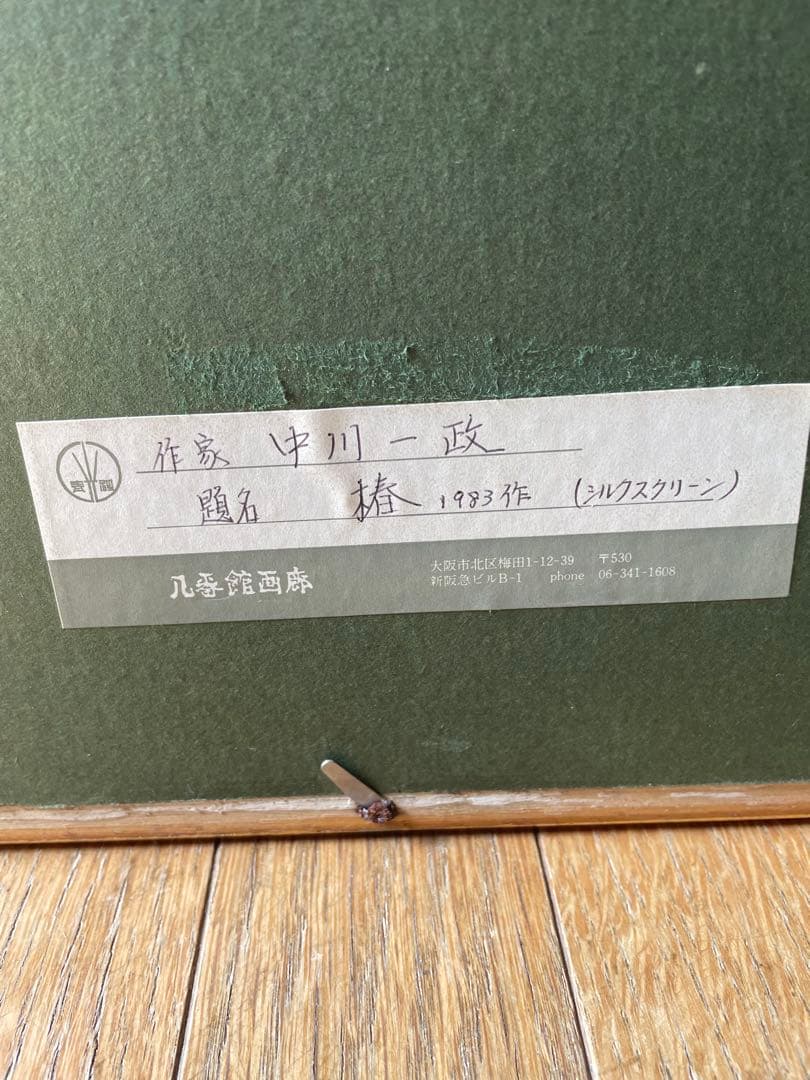 作家 中川一政
題名 椿 1983作 (シルクスクリーン)
八番館画廊
大阪市北区梅田1-12-39 〒530
新阪急ビルB-1 phone 06-341-1608